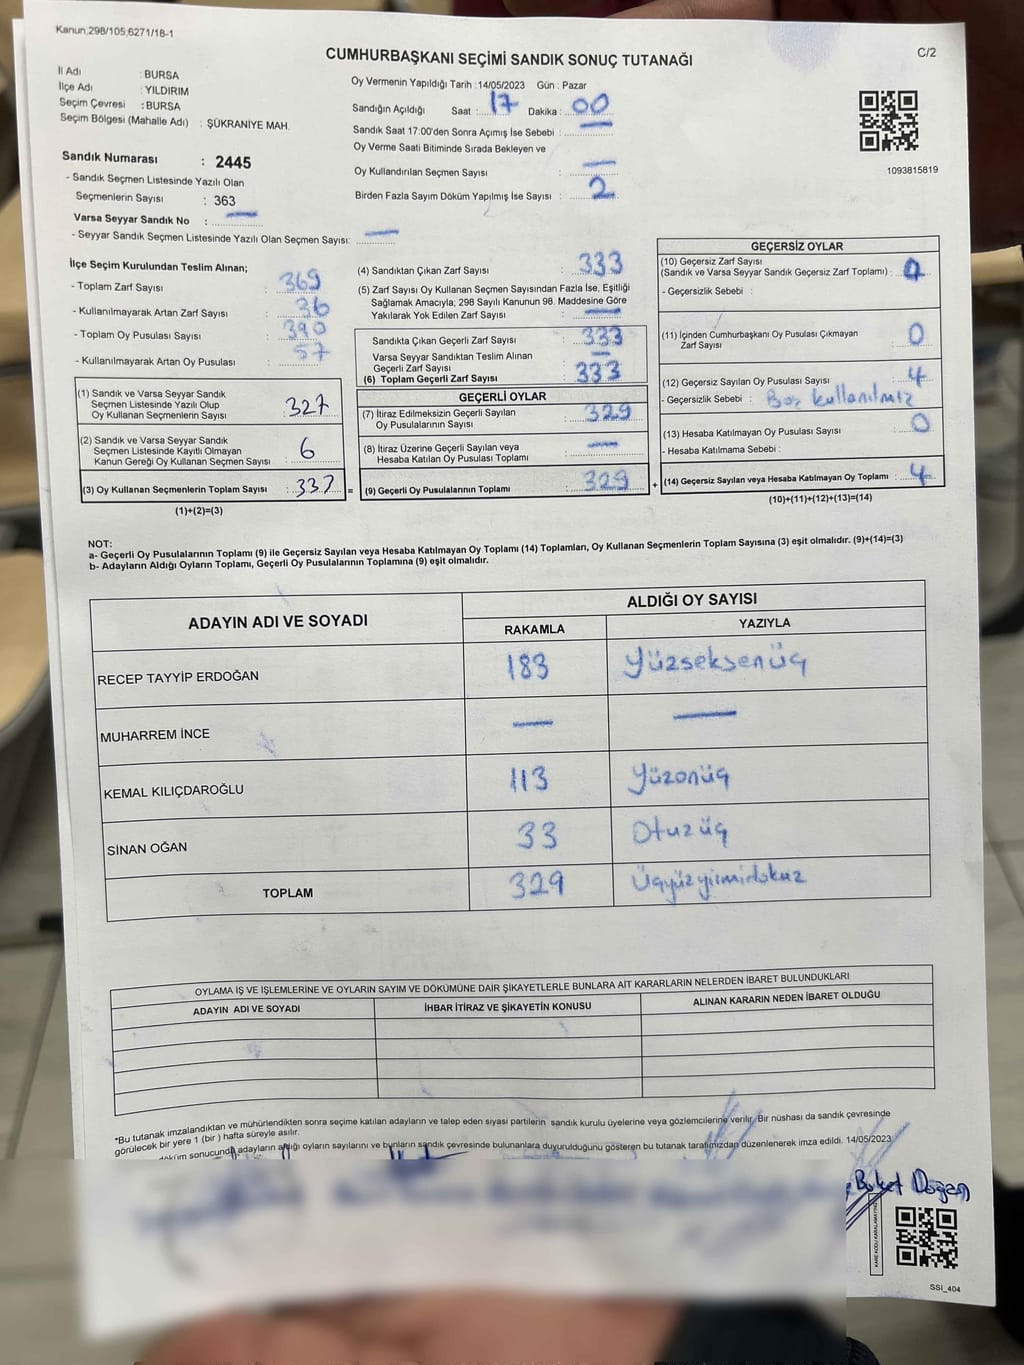 Kanun;298/105;6271/18-1
CUMHURBAŞKANI SEÇİMİ SANDIK SONUÇ TUTANAĞI
C/2
İl Adı : BURSA
İlçe Adı : YILDIRIM
Seçim Çevresi : BURSA
Seçim Bölgesi (Mahalle Adı) : ŞÜKRANİYE MAH.
Oy Vermenin Yapıldığı Tarih : 14/05/2023 Gün : Pazar
Sandığın Açıldığı Saat : 17 Dakika : 00
Sandık Saat 17:00'den Sonra Açımış İse Sebebi : —
Oy Verme Saati Bitiminde Sırada Bekleyen ve
Oy Kullandırılan Seçmen Sayısı : —
Birden Fazla Sayım Döküm Yapılmış İse Sayısı : 2
1093815819
Sandık Numarası : 2445
- Sandık Seçmen Listesinde Yazılı Olan
Seçmenlerin Sayısı : 363
Varsa Seyyar Sandık No : —
- Seyyar Sandık Seçmen Listesinde Yazılı Olan Seçmen Sayısı: —
İlçe Seçim Kurulundan Teslim Alınan;
- Toplam Zarf Sayısı : 369
- Kullanılmayarak Artan Zarf Sayısı : 36
- Toplam Oy Pusulası Sayısı : 390
- Kullanılmayarak Artan Oy Pusulası : 57
(1) Sandık ve Varsa Seyyar Sandık
Seçmen Listesinde Yazılı Olup
Oy Kullanan Seçmenlerin Sayısı : 327
(2) Sandık ve Varsa Seyyar Sandık
Seçmen Listesinde Kayıtlı Olmayan
Kanun Gereği Oy Kullanan Seçmen Sayısı : 6
(3) Oy Kullanan Seçmenlerin Toplam Sayısı : 333 =
(1)+(2)=(3)
(4) Sandıktan Çıkan Zarf Sayısı : 333
(5) Zarf Sayısı Oy Kullanan Seçmen Sayısından Fazla İse, Eşitliği
Sağlamak Amacıyla; 298 Sayılı Kanunun 98. Maddesine Göre
Yakılarak Yok Edilen Zarf Sayısı : —
Sandıkta Çıkan Geçerli Zarf Sayısı : 333
Varsa Seyyar Sandıktan Teslim Alınan
Geçerli Zarf Sayısı : —
(6) Toplam Geçerli Zarf Sayısı : 333
GEÇERLİ OYLAR
(7) İtiraz Edilmeksizin Geçerli Sayılan
Oy Pusulalarının Sayısı : 329
(8) İtiraz Üzerine Geçerli Sayılan veya
Hesaba Katılan Oy Pusulası Toplamı : —
(9) Geçerli Oy Pusulalarının Toplamı : 329 +
GEÇERSİZ OYLAR
(10) Geçersiz Zarf Sayısı
(Sandık ve Varsa Seyyar Sandık Geçersiz Zarf Toplamı) :
- Geçersizlik Sebebi :
(11) İçinden Cumhurbaşkanı Oy Pusulası Çıkmayan
Zarf Sayısı : 0
(12) Geçersiz Sayılan Oy Pusulası Sayısı : 4
- Geçersizlik Sebebi : Boş kullanılmış
(13) Hesaba Katılmayan Oy Pusulası Sayısı : 0
- Hesaba Katılmama Sebebi :
(14) Geçersiz Sayılan veya Hesaba Katılmayan Oy Toplamı : 4
(10)+(11)+(12)+(13)=(14)
NOT:
a- Geçerli Oy Pusulalarının Toplamı (9) ile Geçersiz Sayılan veya Hesaba Katılmayan Oy Toplamı (14) Toplamları, Oy Kullanan Seçmenlerin Toplam Sayısına (3) eşit olmalıdır. (9)+(14)=(3)
b- Adayların Aldığı Oyların Toplamı, Geçerli Oy Pusulalarının Toplamına (9) eşit olmalıdır.
ADAYIN ADI VE SOYADI ALDIĞI OY SAYISI
RAKAMLA YAZIYLA
RECEP TAYYİP ERDOĞAN 183 Yüzseksenüç
MUHARREM İNCE — —
KEMAL KILIÇDAROĞLU 113 Yüzonüç
SİNAN OĞAN 33 Otuzüç
TOPLAM 329 Üçyüzyirmidokuz
OYLAMA İŞ VE İŞLEMLERİNE VE OYLARIN SAYIM VE DÖKÜMÜNE DAİR ŞİKAYETLERLE BUNLARA AİT KARARLARIN NELERDEN İBARET BULUNDUKLARI
ADAYIN ADI VE SOYADI İHBAR İTİRAZ VE ŞİKAYETİN KONUSU ALINAN KARARIN NEDEN İBARET OLDUĞU
*Bu tutanak imzalandıktan ve mühürlendikten sonra seçime katılan adayların ve talep eden siyasi partilerin sandık kurulu üyelerine veya gözlemcilerine verilir. Bir nüshası da sandık çevresinde
görülecek bir yere 1 (bir ) hafta süreyle asılır.
döküm sonucunda adayların aldığı oyların sayılarını ve bunların sandık çevresinde bulunanlara duyurulduğunu gösteren bu tutanak tarafımızdan düzenlenerek imza edildi. 14/05/2023
Doğan
KARE KODU KARALAMAYINIZ
SSI_404